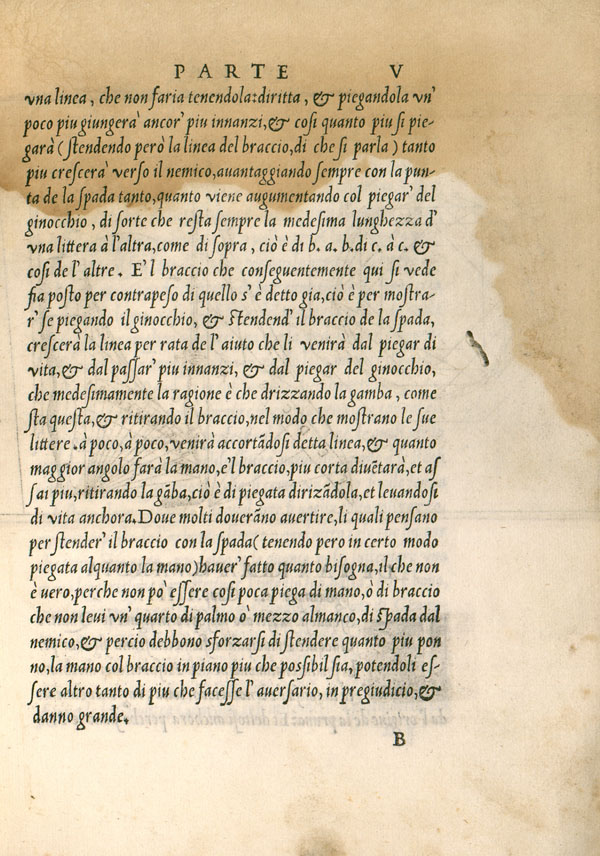 PARTE V
vna linea, che non faria tenendola:diritta, & piegandola vn'
poco piu giungerà ancor' piu innanzi,& cosi quanto piu si pie-
garà (stendendo però la linea del braccio,di che si parla) tanto
piu crescerà verso il nemico,auantaggiando sempre con la pun-
ta de la spada tanto,quanto viene augumentando col piegar' del
ginocchio, di sorte che resta sempre la medesima lunghezza d'
vna littera à l'altra,come di sopra, ciò è di b. a. b.di c. à c. &
cosi de l'altre. E'l braccio che conseguentemente qui si vede
fia posto per contrapeso di quello s'è detto gia,ciò è per mostra-
r' se piegando il ginocchio, & stendend' il braccio de la spada,
crescerà la linea per rata de l'aiuto che li venirà dal piegar di
vita,& dal passar' piu innanzi, & dal piegar del ginocchio,
che medesimamente la ragione è che drizzando la gamba, come
sta questa,& ritirando il braccio,nel modo che mostrano le sue
littere.à poco,à poco,venirà accortãdosi detta linea,& quanto
maggior angolo farà la mano,e'l braccio,piu corta diuẽtarà,et as
sai piu,ritirando la gãba,ciò è di piegata dirizãdola,et leuandosi
di vita anchora.Doue molti doueràno auertire,li quali pensano
per stender' il braccio con la spada(tenendo pero in certo modo
piegata alquanto la mano)hauer' fatto quanto bisogna,il che non
è uero,perche non pò essere cosi poca piega di mano,ò di braccio
che non leui vn' quarto di palmo ò mezzo almanco,di spada dal
nemico,& percio debbono sforzarsi di stendere quanto piu pon
no,la mano col braccio in piano piu che possibil sia, potendoli es-
sere altro tanto di piu che facesse l'auersario, in pregiudicio,&
danno grande.
B